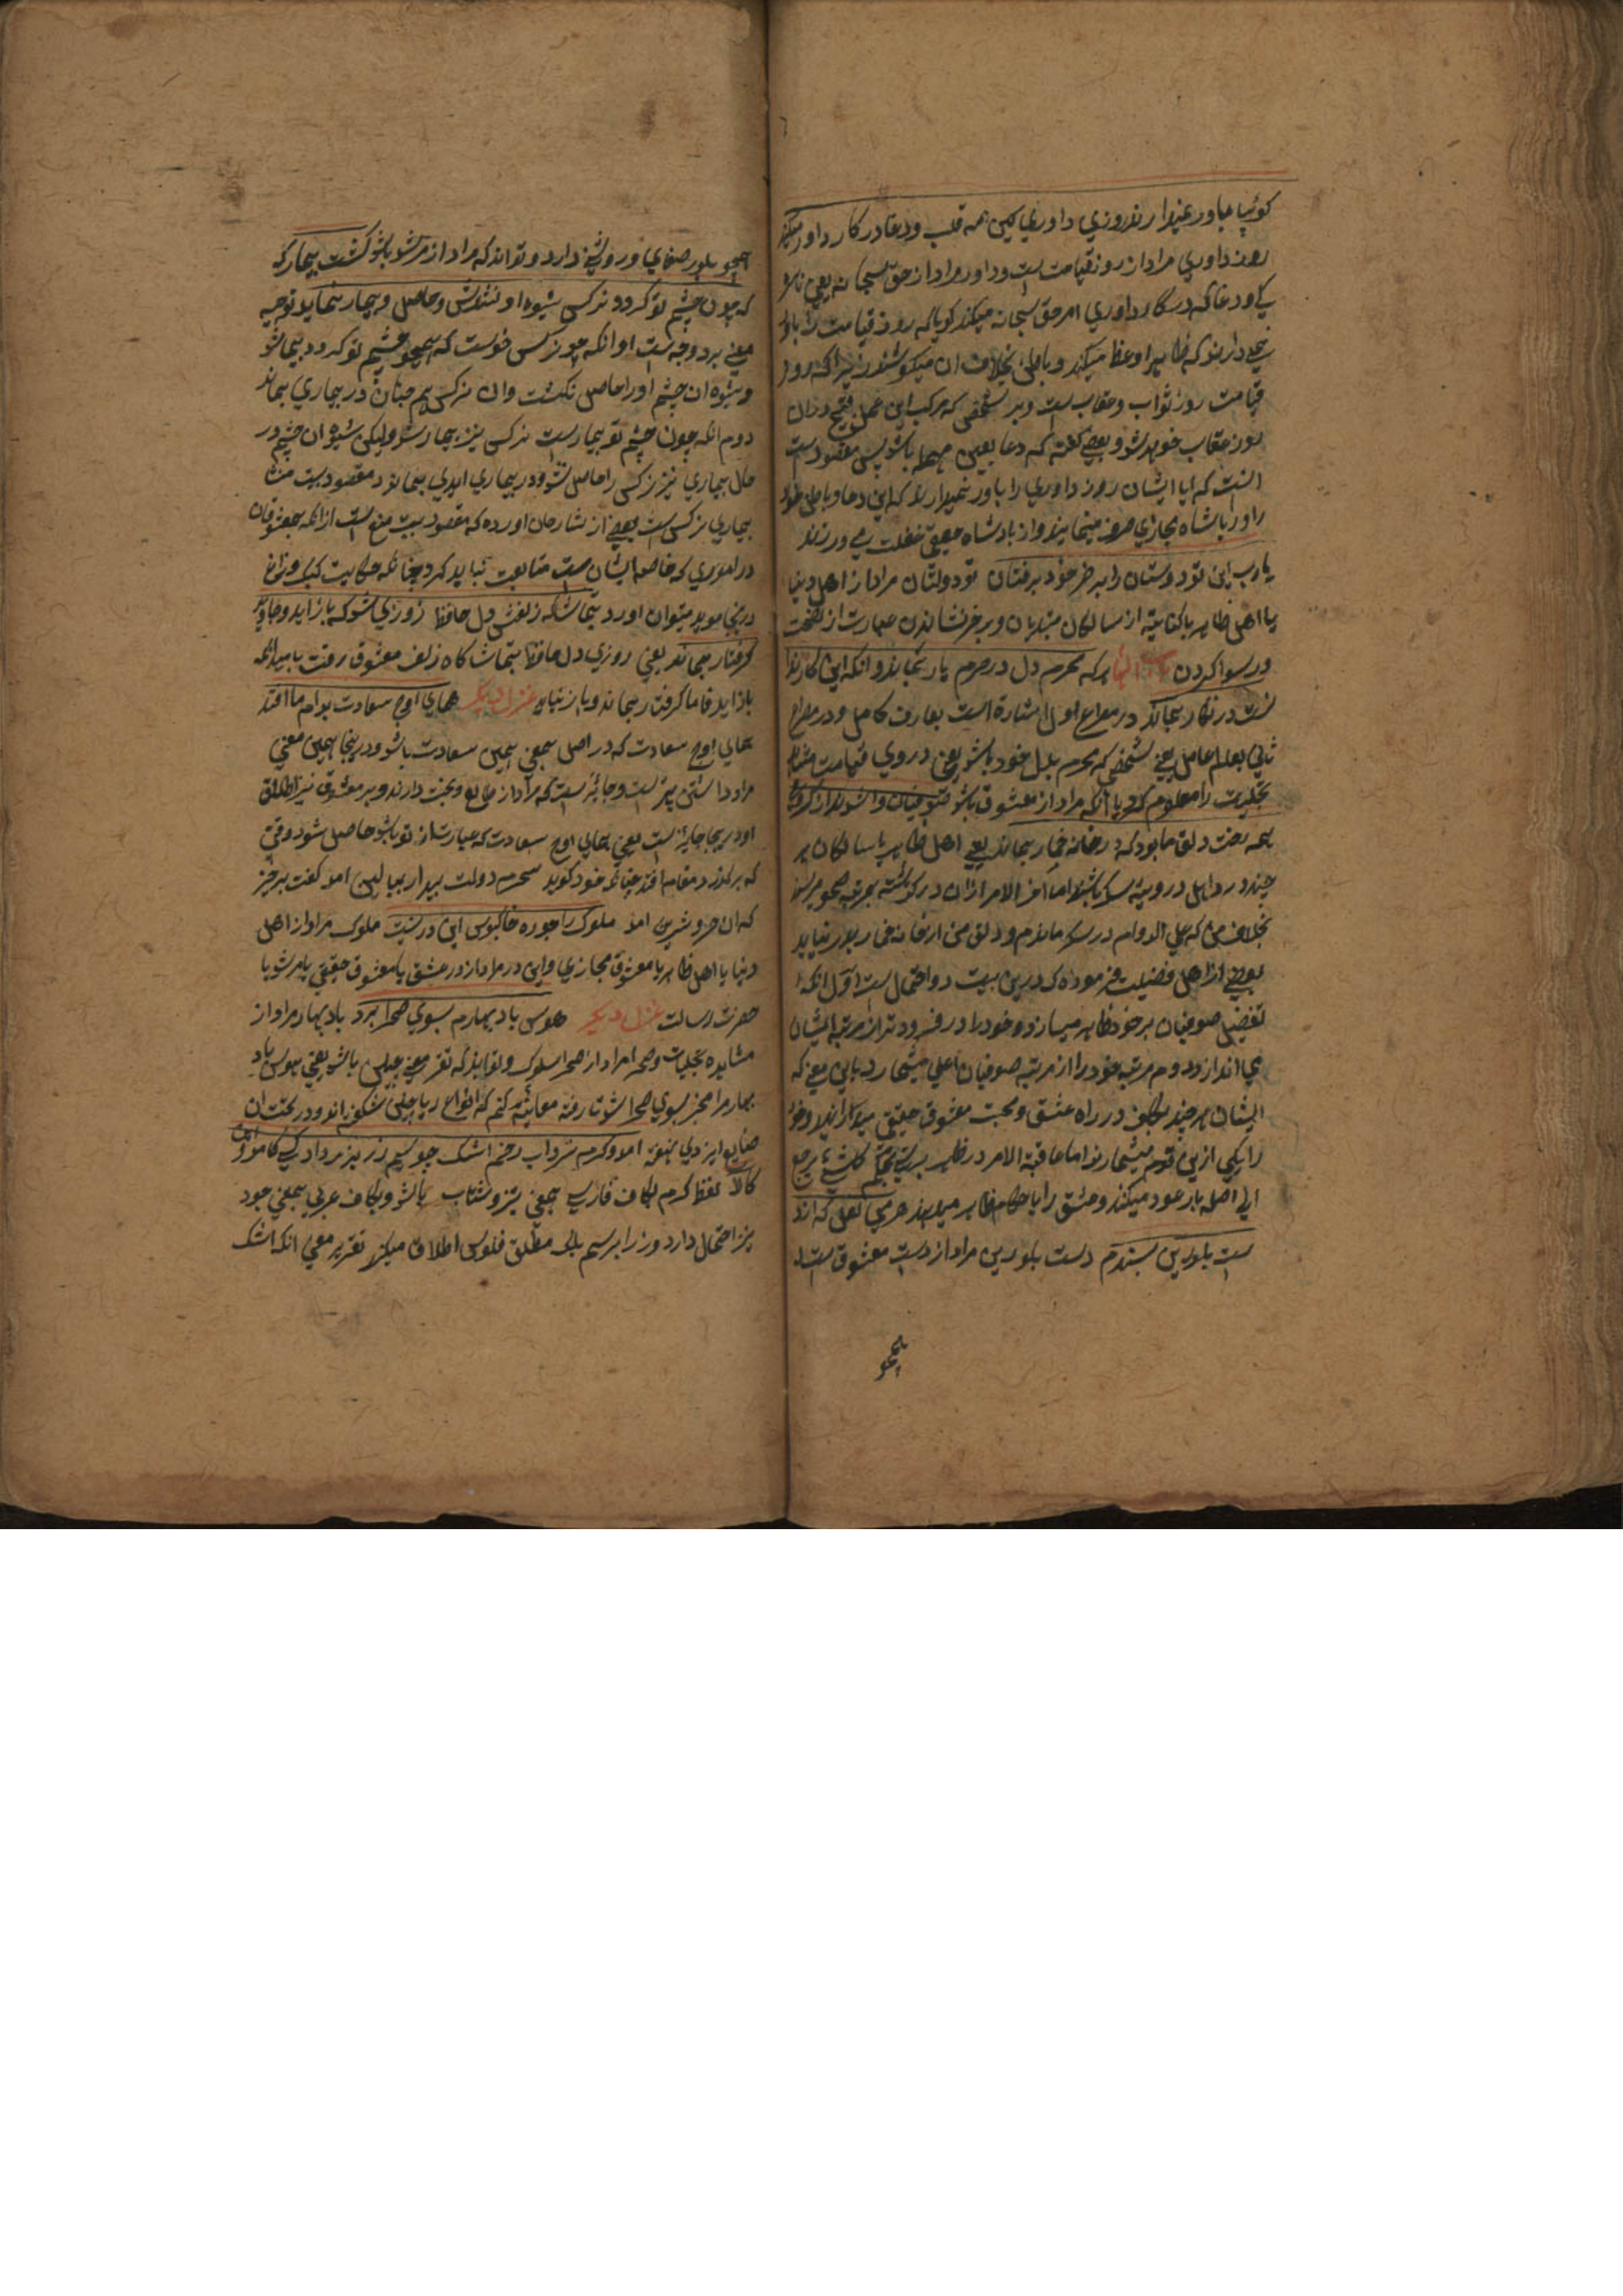 گوئیا باور نمیدارند روزي داوري کین همه قلب و دغا در کار داور میکنند
روز داوري مراد از روز قیامت است و داور مراد از حق سبحانه یعني
و دغا که در کار داوري امر حق سبحانه میکنند گویا که روز قیامت را باور
نمي دارند که ظاهر او عظ میکنند و باطن بخلاف ان میکوشند زیرا که روز
قیامت روز ثواب و عقاب است و هر شخصي که مرکب این عمل قبیح در ان
روز عقاب خواهد شد و بعضي گفته که دغا بعین مهمله باشد پس مقصود است
انست که ایا ایشان روز داوري را باور نمیدارند که این دعا و باطل خود
را در پادشاه مجازي صرف مینمایند و از پادشاه حقیقي غفلت مي ورزند
یارب این نو دولتان را بر خر خود بر نشان نو دولتان مراد از اهل دنیا
یا اهل ظاهر یا کنایة از سالکان مبتدیان و بر خر نشاندن عبارت از فضیحت
و رسوا کردن هر که محرم دل در حرم یار بماند وانکه این کار ندا
نست در انکار بماند در مصراع اول اشارة است بعارف کامل و در مصراع
ثاني بعالم عامل یعني شخصي که محرم بدل خود باشد یعني در وي
تجلیات را معلوم کرد یا انکه مراد از معشوق باشد صوفیان واستدند از گرو مي
همه رخت دلق ما بود که در خانه خمار بماند یعني اهل ظاهر یا سالکان هر
چند در اوایل در ویٔه سکر باشند اما اخر الامر ازان در گذشته بمرتبه صحو میرسند
بخلاف من که علي الدوام در سکر ماندم و دلق من از خانه خمار بدر نیاید
بعضي از اهل فضیلت فرموده که درین بیت دو احتمال است اول انکه
تفضیل صوفیان بر خود ظاهر میسازد و خود را در فرودتر از مرتبه ایشان
مي اندازد دوم مرتبه خود را از مرتبه صوفیان اعلي میشمارد باین معني که
ایشان هر چند بتکلف در راه عشق و محبت معشوق حقیقي میدارند و خود
را یکي ازین قوم میشمارند اما عاقبة الامر در ظاهر بر بحکم کل شئ یرجع
الي اصله باز عود میکند و عشق را با حکام ظاهر میدهند هر مي لعل که ازان
دست بلورین ستدم دست بلورین مراد از دست معشوق است
همچو
همچو بلور صفاي و روشني دارد و تواند که مراد از مرشد باشد گشت بیمار که
که چون چشم تو گردد نرگس شیوهٔ او نشدش حاصل و بیمار بماند توجیه
معني بر دو وجه است او انکه چون نرگس خواست که همچو چشم تو گردد بیمار شد
و شیوه ان چشم او را حاصل نگشت و ان نرگس هم چنان در بیماري بماند
دوم انکه چون چشم تو بیمار است نرگس نیز بیمار شد ولیکن شیوه ان چشم در
حال بیماري نیز نرگس را حاصل نشد و در بیماري ابدي بماند و مقصود بیت منشا
بیماري نرگس است بعضي از شارحان اورده که مقصود بیت منع است از انکه بمعشوقان
در اموري که خاصه ایشان است متابعت نباید کرد چنانکه حکایت کبک و زاغ
درینجا موید میتوان اورد بتماشاگه زلفش دل حافظ روزي شد که باز اید و جاوید
گرفتار بماند یعني روزي دل حافظ بتماشا گاه زلف معشوق رفت بامید انکه
باز اید فاما گرفتار بماند و باز نیامد غزل دیگر هماي اوج سعادت بدام ما افتد
هماي اوج سعادت که در اصل بمعني همین سعادت باشد و درینجا همین معني
مراد داشتن بهتر است و جائز است که مراد از طالع و بخت دارند و بر معشوق نیز اطلاق
او درینجا جائز است یعني هماي اوج سعادت که عبارت از تو باشد حاصل شود وقتي
که بر گذر و مقام افتد چنانکه خود گوید سحرم دولت بیدار ببالین امد گفت برخیز
که ان خسرو شیرین امد ملوک را چو ره خاکبوس این در نیست ملوک مراد از اهل
دنیا یا اهل ظاهر یا معشوق مجازي و این در مراد از در عشق یا معشوق حقیقي یا مرشد یا
حضرت رسالت غزل دیگر هوس باد بهارم بسوي صحرا برد باد بهار مراد از
مشاهده تجلیات و صحرا مراد از صحرا سلوک و تواند که تقریر معني چنین باشد یعني هوس باد
بهار مرا بجز بسوي صحرا شد تا رفته معائنه کنم که انواع ریاحین شگفته اند و در تحت ان
امد و گرم سرداب رخم اشک چو سیم زر بزر داد کسي کامد و این
کالا لفظ گرم بکاف فارسي بمعني تیز و شتاب باشد و بکاف عربي بمعني جود
نیز احتمال دارد و زر را بر سیم بلکه مطلق فلوس اطلاق میکنند تقریر معني انکه اشک